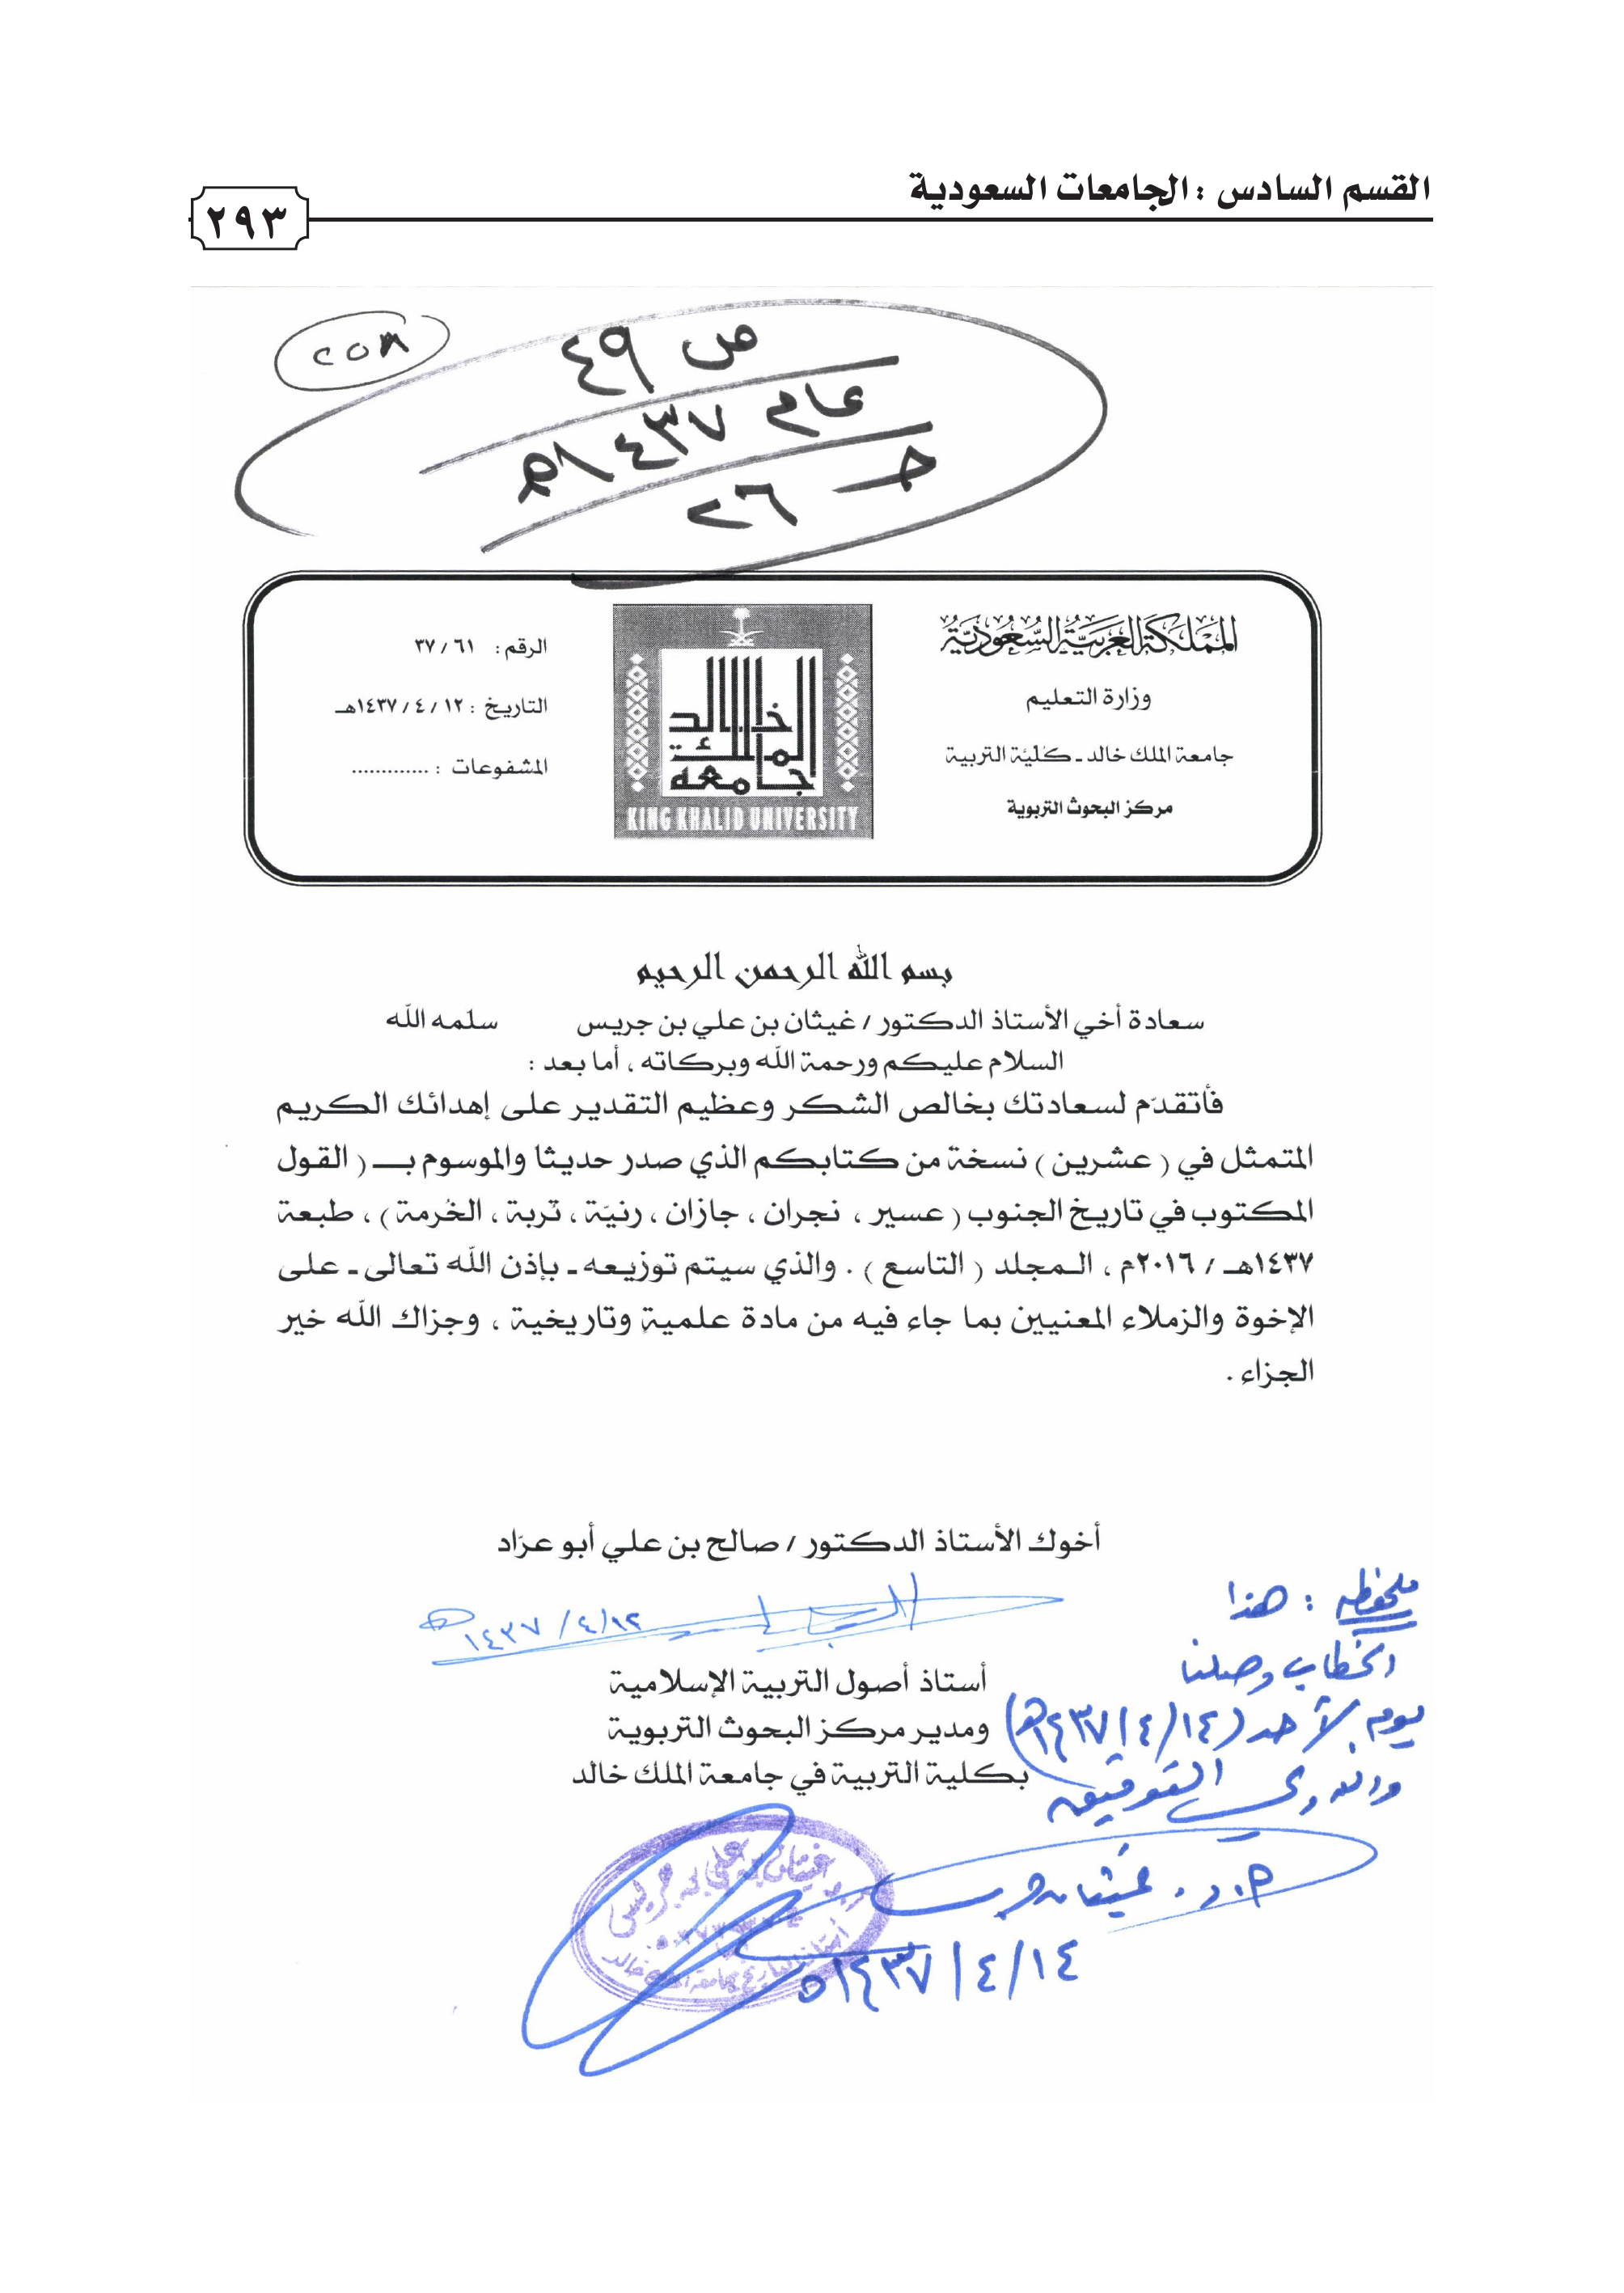 القسم السادس : الجامعات السعودية
٢٩٣
ص ٤٩
٢٥٨
عام ١٤٣٧هـ
جـ ٢٦
المملكة العربية السعودية
وزارة التعليم
جامعة الملك خالد ـ كليّة التربية
مركز البحوث التربوية
خالد
الملك
جامعة
KING KHALID UNIVERSITY
الرقم : ٣٧/٦١
التاريخ : ١٤٣٧/٤/١٢هـ
المشفوعات : .............
بسم الله الرحمن الرحيم
سعادة أخي الأستاذ الدكتور / غيثان بن علي بن جريس سلمه الله
السلام عليكم ورحمة الله وبركاته ، أما بعد :
فأتقدّم لسعادتك بخالص الشكر وعظيم التقدير على إهدائك الكريم
المتمثل في ( عشرين ) نسخة من كتابكم الذي صدر حديثا والموسوم بـــ ( القول
المكتوب في تاريخ الجنوب ( عسير ، نجران ، جازان ، رنيّة ، تربة ، الخُرمة ) ، طبعة
١٤٣٧هـ / ٢٠١٦م ، المجلد ( التاسع ) . والذي سيتم توزيعه ـ بإذن الله تعالى ـ على
الإخوة والزملاء المعنيين بما جاء فيه من مادة علميةٍ وتاريخية ، وجزاك الله خير
الجزاء .
أخوك الأستاذ الدكتور / صالح بن علي أبو عرّاد
١٤٣٧/٤/١٢هـ
أستاذ أصول التربية الإسلامية
ومدير مركز البحوث التربوية
بكلية التربية في جامعة الملك خالد
ملحوظة : هذا
الخطاب وصلنا
يوم الأحد (١٤٣٧/٤/١٤هـ)
والله ولي التوفيق
أ.د. غيثان جريس
١٤٣٧/٤/١٤هـ
غيثان بن علي بن جريس
أستاذ التاريخ بجامعة الملك خالد